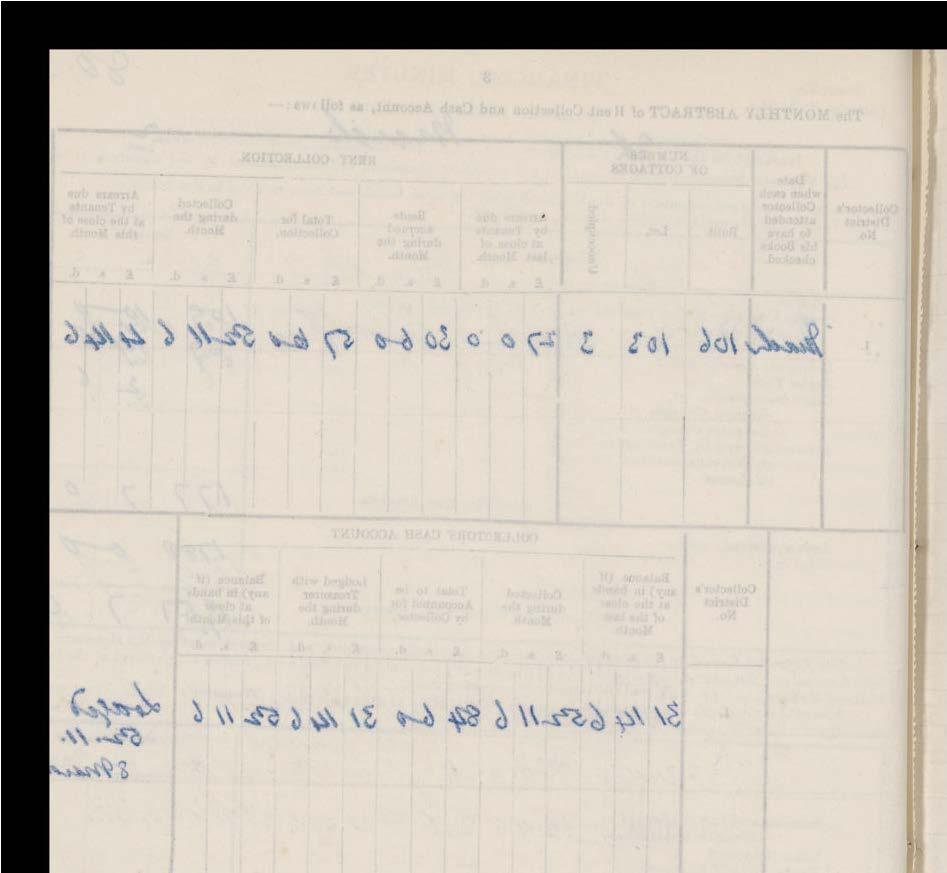 3
The MONTHLY ABSTRACT of Rent Collection and Cash Account, as follows:—
Collector's District No.
Date when each Collector attended to have his Books checked.
NUMBER OF COTTAGES
Built
Let.
Unoccupied
RENT COLLECTION.
Arrears due by Tenants at close of last Month.
Rents accrued during the Month.
Total for Collection.
Collected during the Month.
Arrears due by Tenants at the close of this Month.
£ s. d. £ s. d. £ s. d. £ s. d. £ s. d.
1. 106 103 3 27 0 0 30 6 0 57 6 0 52 11 6 4 14 6
COLLECTORS' CASH ACCOUNT
Collector's District No.
Balance (if any) in hands at the close of the last Month
Collected during the Month
Total to be Accounted for by Collector.
Lodged with Treasurer during the Month.
Balance (if any) in hands at close of this Month.
£ s. d. £ s. d. £ s. d. £ s. d. £ s. d.
31 14 6 52 11 6 84 6 0 31 14 6 52 11 6
Lodged
52. 11.